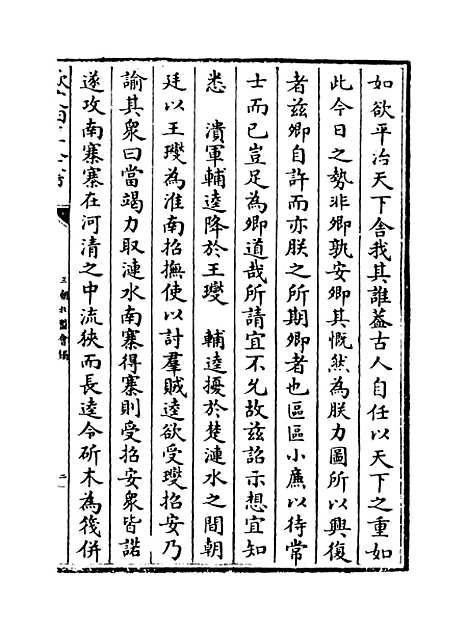 如欲平治天下舍我其誰蓋古人自任以天下之重如
此今日之勢非卿孰安卿其慨然為朕力圖所以興復
者兹卿自許而亦朕之所期卿者也區區小廉以待常
士而已豈足為卿道哉所請宜不允故兹詔示想宜知
悉　潰軍輔逵降於王㻽　輔逵擾於楚漣水之間朝
廷以王㻽為淮南招撫使以討羣賊逵欲受㻽招安乃
諭其衆曰當竭力取漣水南寨得寨則受招安衆皆諾
遂攻南寨寨在河清之中流狹而長逵令斫木為筏併
欽定四庫全書
三朝北盟會編